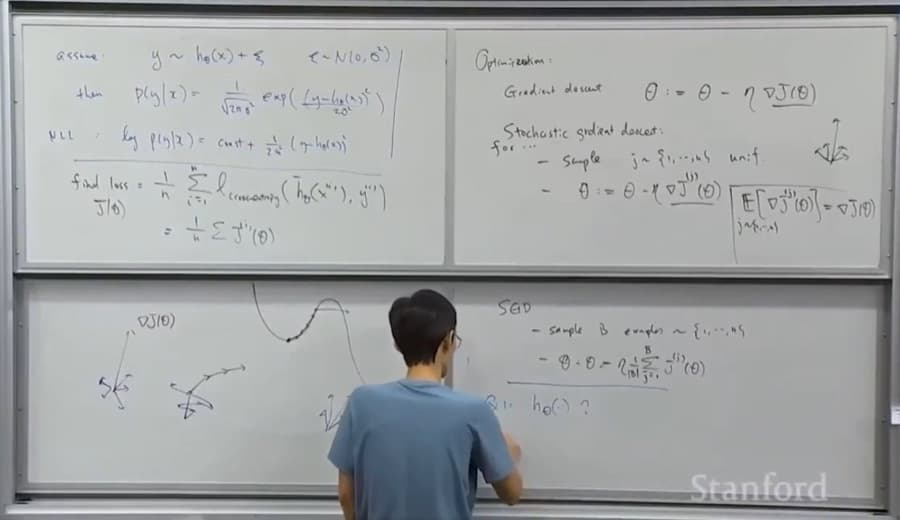 assume: y ~ hθ(x) + ξ ε ~ N(0, σ²)
then p(y|x) = 1/√(2πσ²) exp((y-hθ(x))²/2σ²)
NLL: log p(y|x) = const + 1/2σ² (y-hθ(x))²
find loss = 1/n Σ_{i=1}^{n} ℓ_crossentropy(h̄θ(x⁽ⁱ⁾), y⁽ⁱ⁾)
J(θ)
= 1/n Σ J⁽ⁱ⁾(θ)
Optimization:
Gradient descent θ := θ - η ∇J(θ)
Stochastic gradient descent:
for ...
- sample j ~ {1, ..., n} unif
- θ := θ - η ∇J⁽ʲ⁾(θ)
E[∇J⁽ʲ⁾(θ)] = ∇J(θ)
j~{1,..,n}
∇J(θ)
SGD
- sample B examples ~ {1, .., n}
- θ - θ = η 1/|B| Σ_{j=1}^{B} J⁽ʲ⁾(θ)
Q1. hθ(·) ?
Stanford